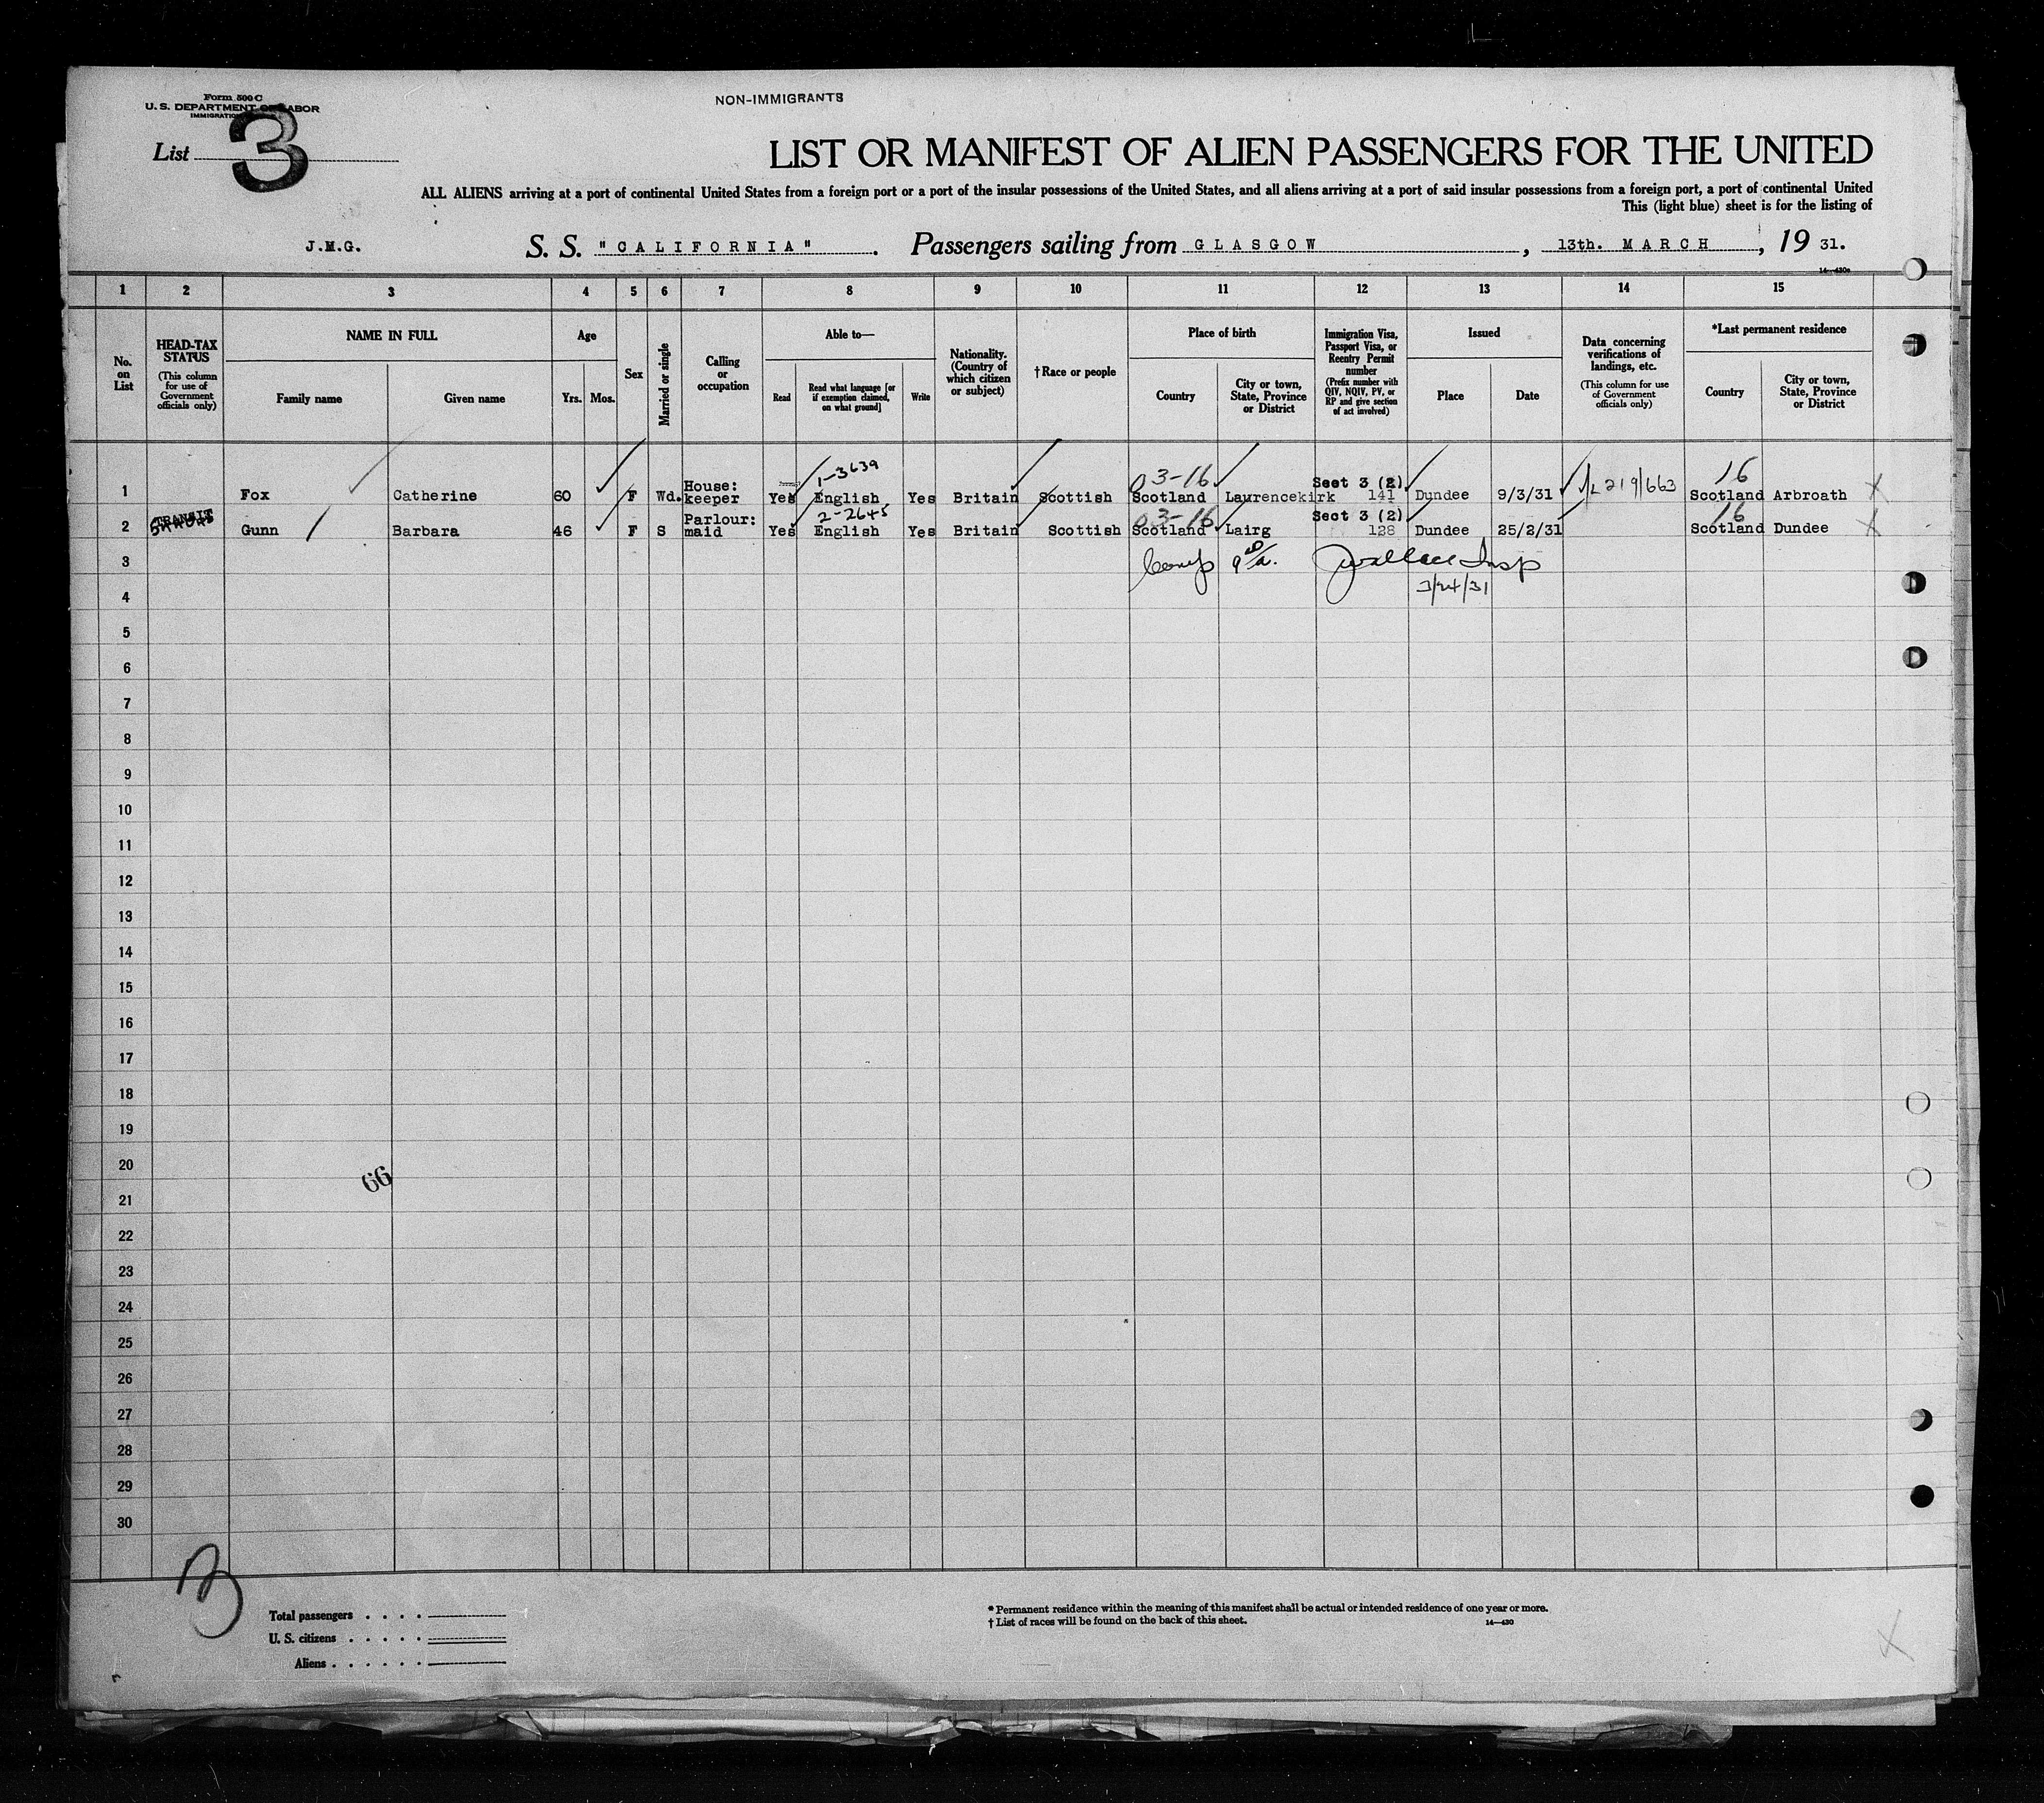 Form 500 C
U. S. DEPARTMENT OF LABOR
NON-IMMIGRANTS
List 3
LIST OR MANIFEST OF ALIEN PASSENGERS FOR THE UNITED
ALL ALIENS arriving at a port of continental United States from a foreign port or a port of the insular possessions of the United States, and all aliens arriving at a port of said insular possessions from a foreign port, a port of continental United
This (light blue) sheet is for the listing of
J.M.G. S. S. "CALIFORNIA". Passengers sailing from GLASGOW, 13th. MARCH, 19 31.
14—430a
1 2 3 4 5 6 7 8 9 10 11 12 13 14 15
No. on List
HEAD-TAX STATUS (This column for use of Government officials only)
NAME IN FULL
Family name
Given name
Age
Yrs. Mos.
Sex
Married or single
Calling or occupation
Able to—
Read
Read what language [or if exemption claimed, on what ground]
Write
Nationality. (Country of which citizen or subject)
†Race or people
Place of birth
Country
City or town, State, Province or District
Immigration Visa, Passport Visa, or Reentry Permit number (Prefix number with QIV, NQIV, PV, or RP and give section of act involved)
Issued
Place
Date
Data concerning verifications of landings, etc. (This column for use of Government officials only)
*Last permanent residence
Country
City or town, State, Province or District
1-3639 03-16 Sect 3 (2) 16
1 Fox Catherine 60 F Wd. House: keeper Yes English Yes Britain Scottish Scotland Laurencekirk 141 Dundee 9/3/31 L219/663 Scotland Arbroath X
2-2645 03-16 Sect 3 (2) 16
2 TRANSIT Gunn Barbara 46 F S Parlour: maid Yes English Yes Britain Scottish Scotland Lairg 128 Dundee 25/2/31 Scotland Dundee X
3 Comp Wallace Insp
4 3/24/31
5
6
7
8
9
10
11
12
13
14
15
16
17
18
19
20
66
21
22
23
24
25
26
27
28
29
30
Total passengers
U. S. citizens
Aliens
* Permanent residence within the meaning of this manifest shall be actual or intended residence of one year or more.
† List of races will be found on the back of this sheet. 14—430
X